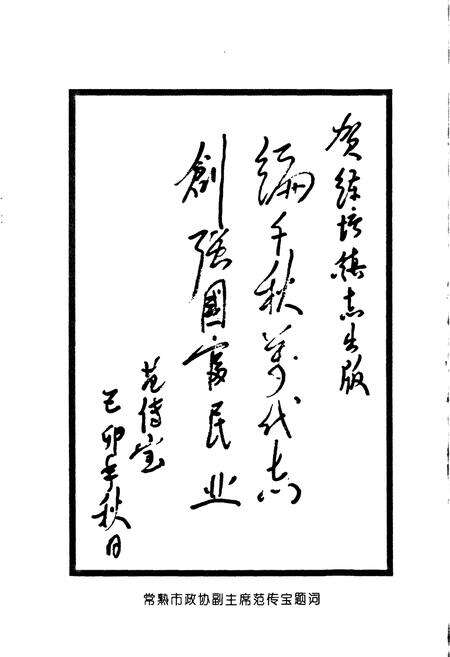 贺练塘镇志出版
编千秋萬代志
創强國富民业
范传宝
己卯年秋日
常熟市政协副主席范传宝题词